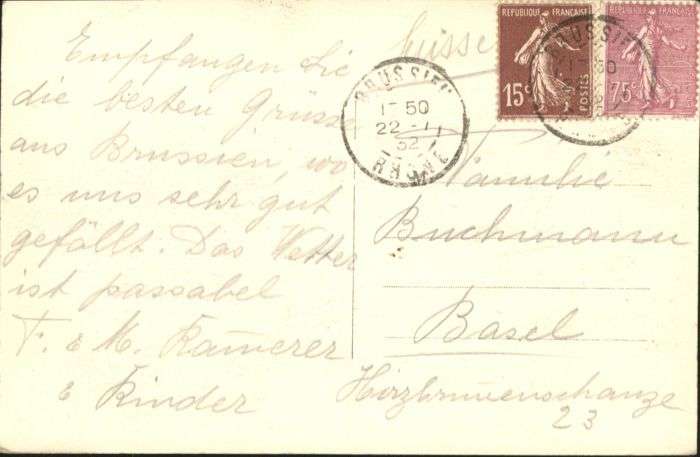 Empfangen Sie
die besten Grüsse
aus Brussien, wo
es uns sehr gut
gefällt. Das Wetter
ist passabel
F. & M. Kamerer
& Kinder
Suisse
REPUBLIQUE FRANÇAISE
15c
POSTES
REPUBLIQUE FRANÇAISE
75c
17 50
22 - 1
32
RHONE
Familie
Buchmann
Basel
Hirzbrunnenschanze
23